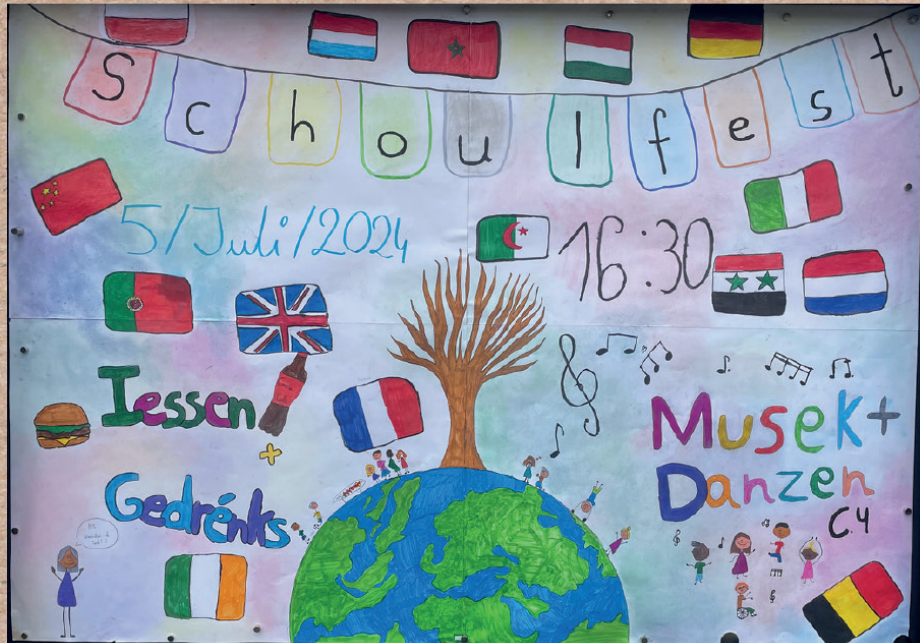 Schoulfest
5/Juli/2024
16:30
Iessen
+
Gedrénks
Musek+
Danzen
C.4